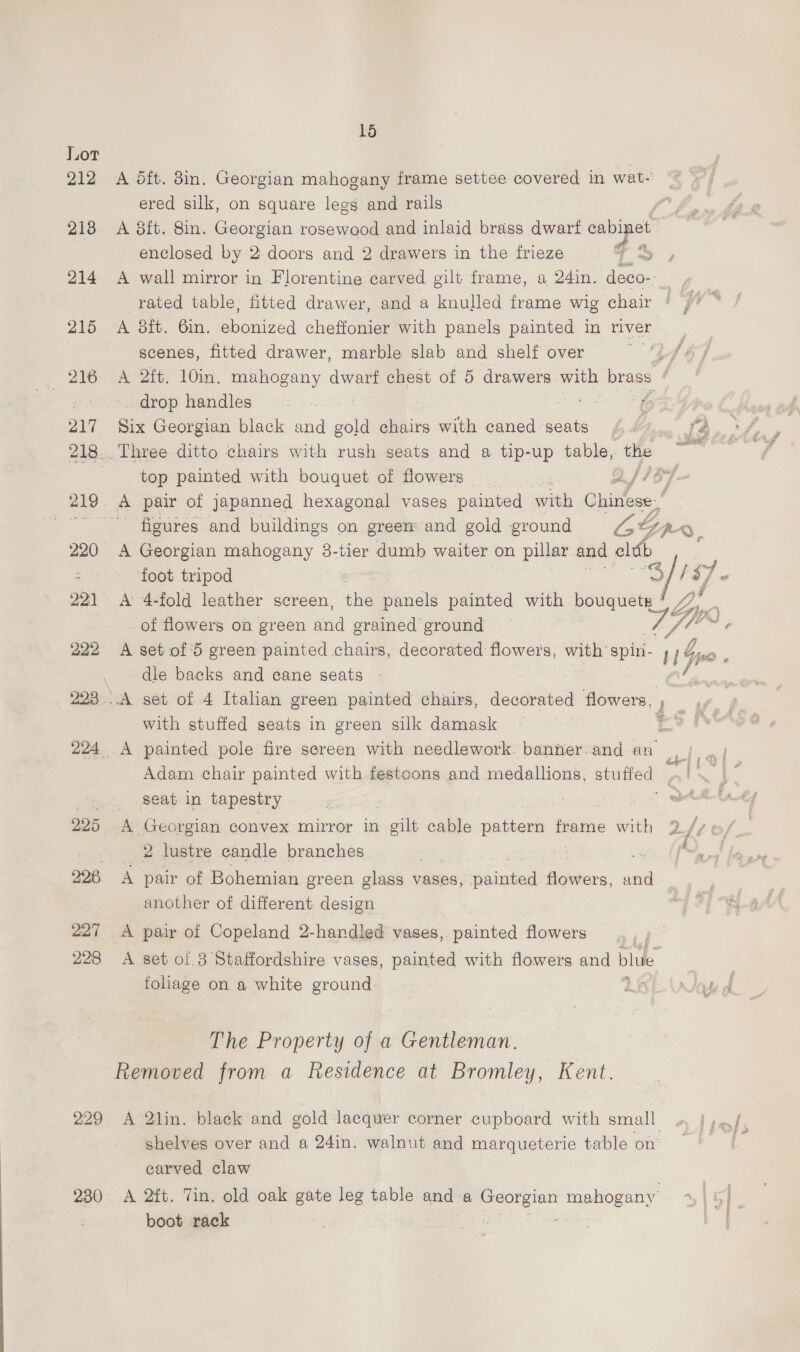 15
Lot
212 A 5ft. 3in. Georgian mahogany frame settee covered in wat-
ered silk, on square legs and rails
213 A 3ft. 8in. Georgian rosewood and inlaid brass dwarf cabinet
enclosed by 2 doors and 2 drawers in the frieze
214 A wall mirror in Florentine carved gilt frame, a 24in. deco-
rated table, fitted drawer, and a knulled frame wig chair
215 A 3ft. 6in. ebonized cheffonier with panels painted in river
scenes, fitted drawer, marble slab and shelf over
216 A 2ft. 10in. mahogany dwarf chest of 5 drawers with brass
drop handles
217 Six Georgian black and gold chairs with caned seats
218 Three ditto chairs with rush seats and a tip-up table, the
top painted with bouquet of flowers
219 A pair of japanned hexagonal vases painted with Chinese
figures and buildings on green and gold ground
220 A Georgian mahogany 3-tier dumb waiter on pillar and club
foot tripod
221 A 4-fold leather screen, the panels painted with bouquets
of flowers on green and grained ground
222 A set of 5 green painted chairs, decorated flowers, with spin-
dle backs and cane seats
223 A set of 4 Italian green painted chairs, decorated flowers,
with stuffed seats in green silk damask
224 A painted pole fire screen with needlework banner and an
Adam chair painted with festoons and medallions, stuffed
seat in tapestry
225 A Georgian convex mirror in gilt cable pattern frame with
2 lustre candle branches
226 A pair of Bohemian green glass vases, painted flowers, and
another of different design
227 A pair of Copeland 2-handled vases, painted flowers
228 A set of 3 Staffordshire vases, painted with flowers and blue
foliage on a white ground
The Property of a Gentleman.
Removed from a Residence at Bromley, Kent.
229 A 21in. black and gold lacquer corner cupboard with small
shelves over and a 24in. walnut and marqueterie table on
carved claw
230 A 2ft. 7in. old oak gate leg table and a Georgian mahogany
boot rack